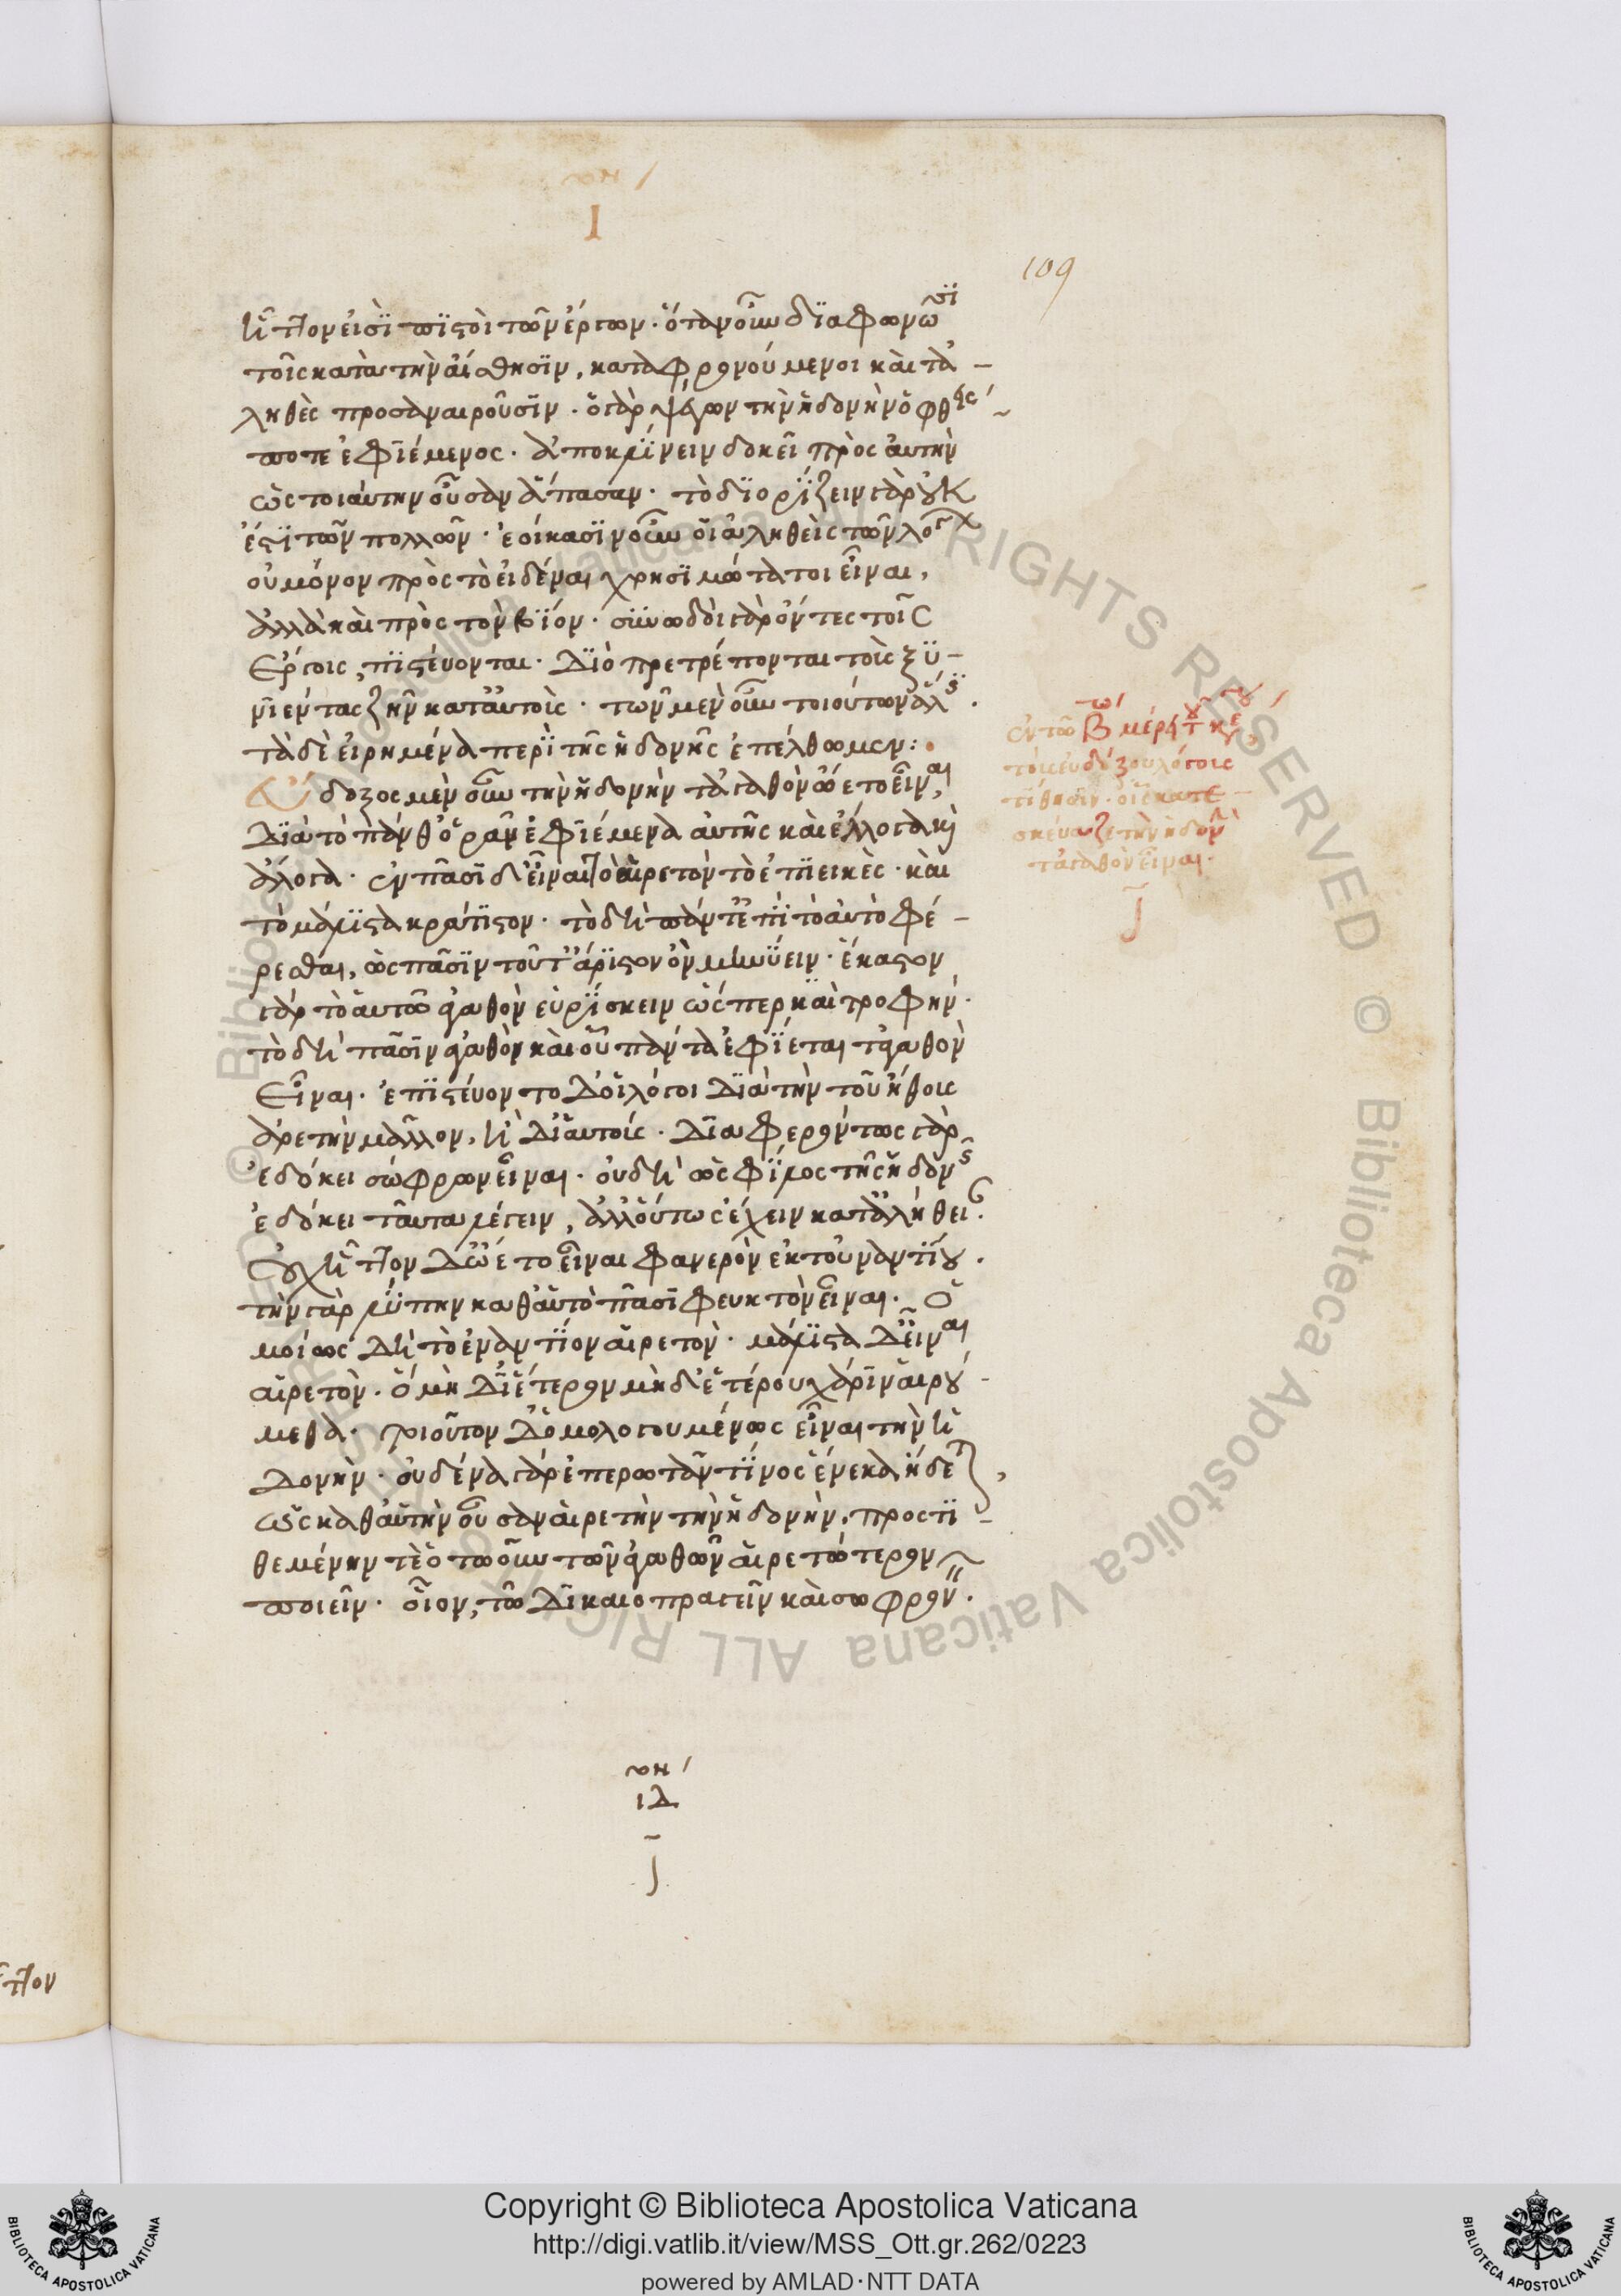 Ι
109
ἧττόν εἰσι πιστοὶ τῶν ἔργων· ὅταν οὖν διαφωνῶσι
τοῖς κατὰ τὴν αἴσθησιν, καταφρονούμενοι καὶ τἀ-
ληθὲς προσαναιροῦσιν· ὁ γὰρ ψέγων τὴν ἡδονὴν ὀφθείς
ποτε ἐφιέμενος· ἀποκλίνειν δοκεῖ πρὸς αὐτὴν
ὡς τοιαύτην οὖσαν ἅπασαν· τὸ διορίζειν γὰρ οὐκ
ἔστι τῶν πολλῶν· ἐοίκασιν οὖν οἱ ἀληθεῖς τῶν λόγων
οὐ μόνον πρὸς τὸ εἰδέναι χρησιμώτατοι εἶναι,
ἀλλὰ καὶ πρὸς τὸν βίον· συνῳδοὶ γὰρ ὄντες τοῖς
ἔργοις, πιστεύονται· Διὸ προτρέπονται τοὺς ξυ-
νιέντας ζῆν κατ' αὐτοὺς· τῶν μὲν οὖν τοιούτων ἅλις·
τὰ δὲ εἰρημένα περὶ τῆς ἡδονῆς ἐπέλθωμεν:
Εὔδοξος μὲν οὖν τὴν ἡδονὴν τἀγαθὸν ᾤετο εἶναι,
Διὰ τὸ πάνθ' ὁρᾶν ἐφιέμενα αὐτῆς καὶ ἔλλογα καὶ
ἄλογα· ἐν πᾶσι δ' εἶναι τὸ αἱρετὸν τὸ ἐπιεικὲς· καὶ
τὸ μάλιστα κράτιστον· τὸ δὴ πάντ' ἐπὶ τὸ αὐτὸ φέ-
ρεσθαι, ὡς πᾶσιν τοῦτ' ἄριστον ὂν μηνύειν· ἕκαστον
γὰρ τὸ αὑτῶ ἀγαθὸν εὑρίσκειν ὥσπερ καὶ τροφήν·
τὸ δὴ πᾶσιν ἀγαθὸν καὶ οὗ πάντα ἐφίεται τἀγαθὸν
εἶναι· ἐπιστεύοντο δ' οἱ λόγοι διὰ τὴν τοῦ ἤθους
ἀρετὴν μᾶλλον, ἢ δι' αὑτούς· Διαφερόντως γὰρ
ἐδόκει σώφρων εἶναι· οὐ δὴ ὡς φίλος τῆς ἡδονῆς
ἐδόκει ταῦτα λέγειν, ἀλλ' οὕτως ἔχειν κατ' ἀλήθειαν·
Οὐχ ἧττον δ' ᾤετο εἶναι φανερὸν ἐκ τοῦ ἐναντίου·
τὴν γὰρ λύπην καθ' αὑτὸ πᾶσι φευκτὸν εἶναι· ὁ
μοίως δὴ τὸ ἐναντίον αἱρετόν· μάλιστα δ' εἶναι
αἱρετὸν· ὃ μὴ δι' ἕτερον μὴδ' ἑτέρου χάριν αἱρού-
μεθα· τοιοῦτον δ' ὁμολογουμένως εἶναι τὴν ἡ
δονήν· οὐδένα γὰρ ἐπερωτᾶν τίνος ἕνεκα ἥδεται,
ὡς καθ' αὑτὴν οὖσαν αἱρετὴν τὴν ἡδονήν, προστι-
θεμένην τὲ ὁτῳοῦν τῶν ἀγαθῶν αἱρετώτερον
ποιεῖν· οἷον, τῶ δικαιοπραγεῖν καὶ σωφρονεῖν·
τοὺς Εὐδόξου λόγους
τίθησιν· οἷς κατε-
σκεύαζε τὴν ἡδονὴν
τἀγαθὸν εἶναι·
ιδ
Copyright © Biblioteca Apostolica Vaticana
http://digi.vatlib.it/view/MSS_Ott.gr.262/0223
powered by AMLAD·NTT DATA